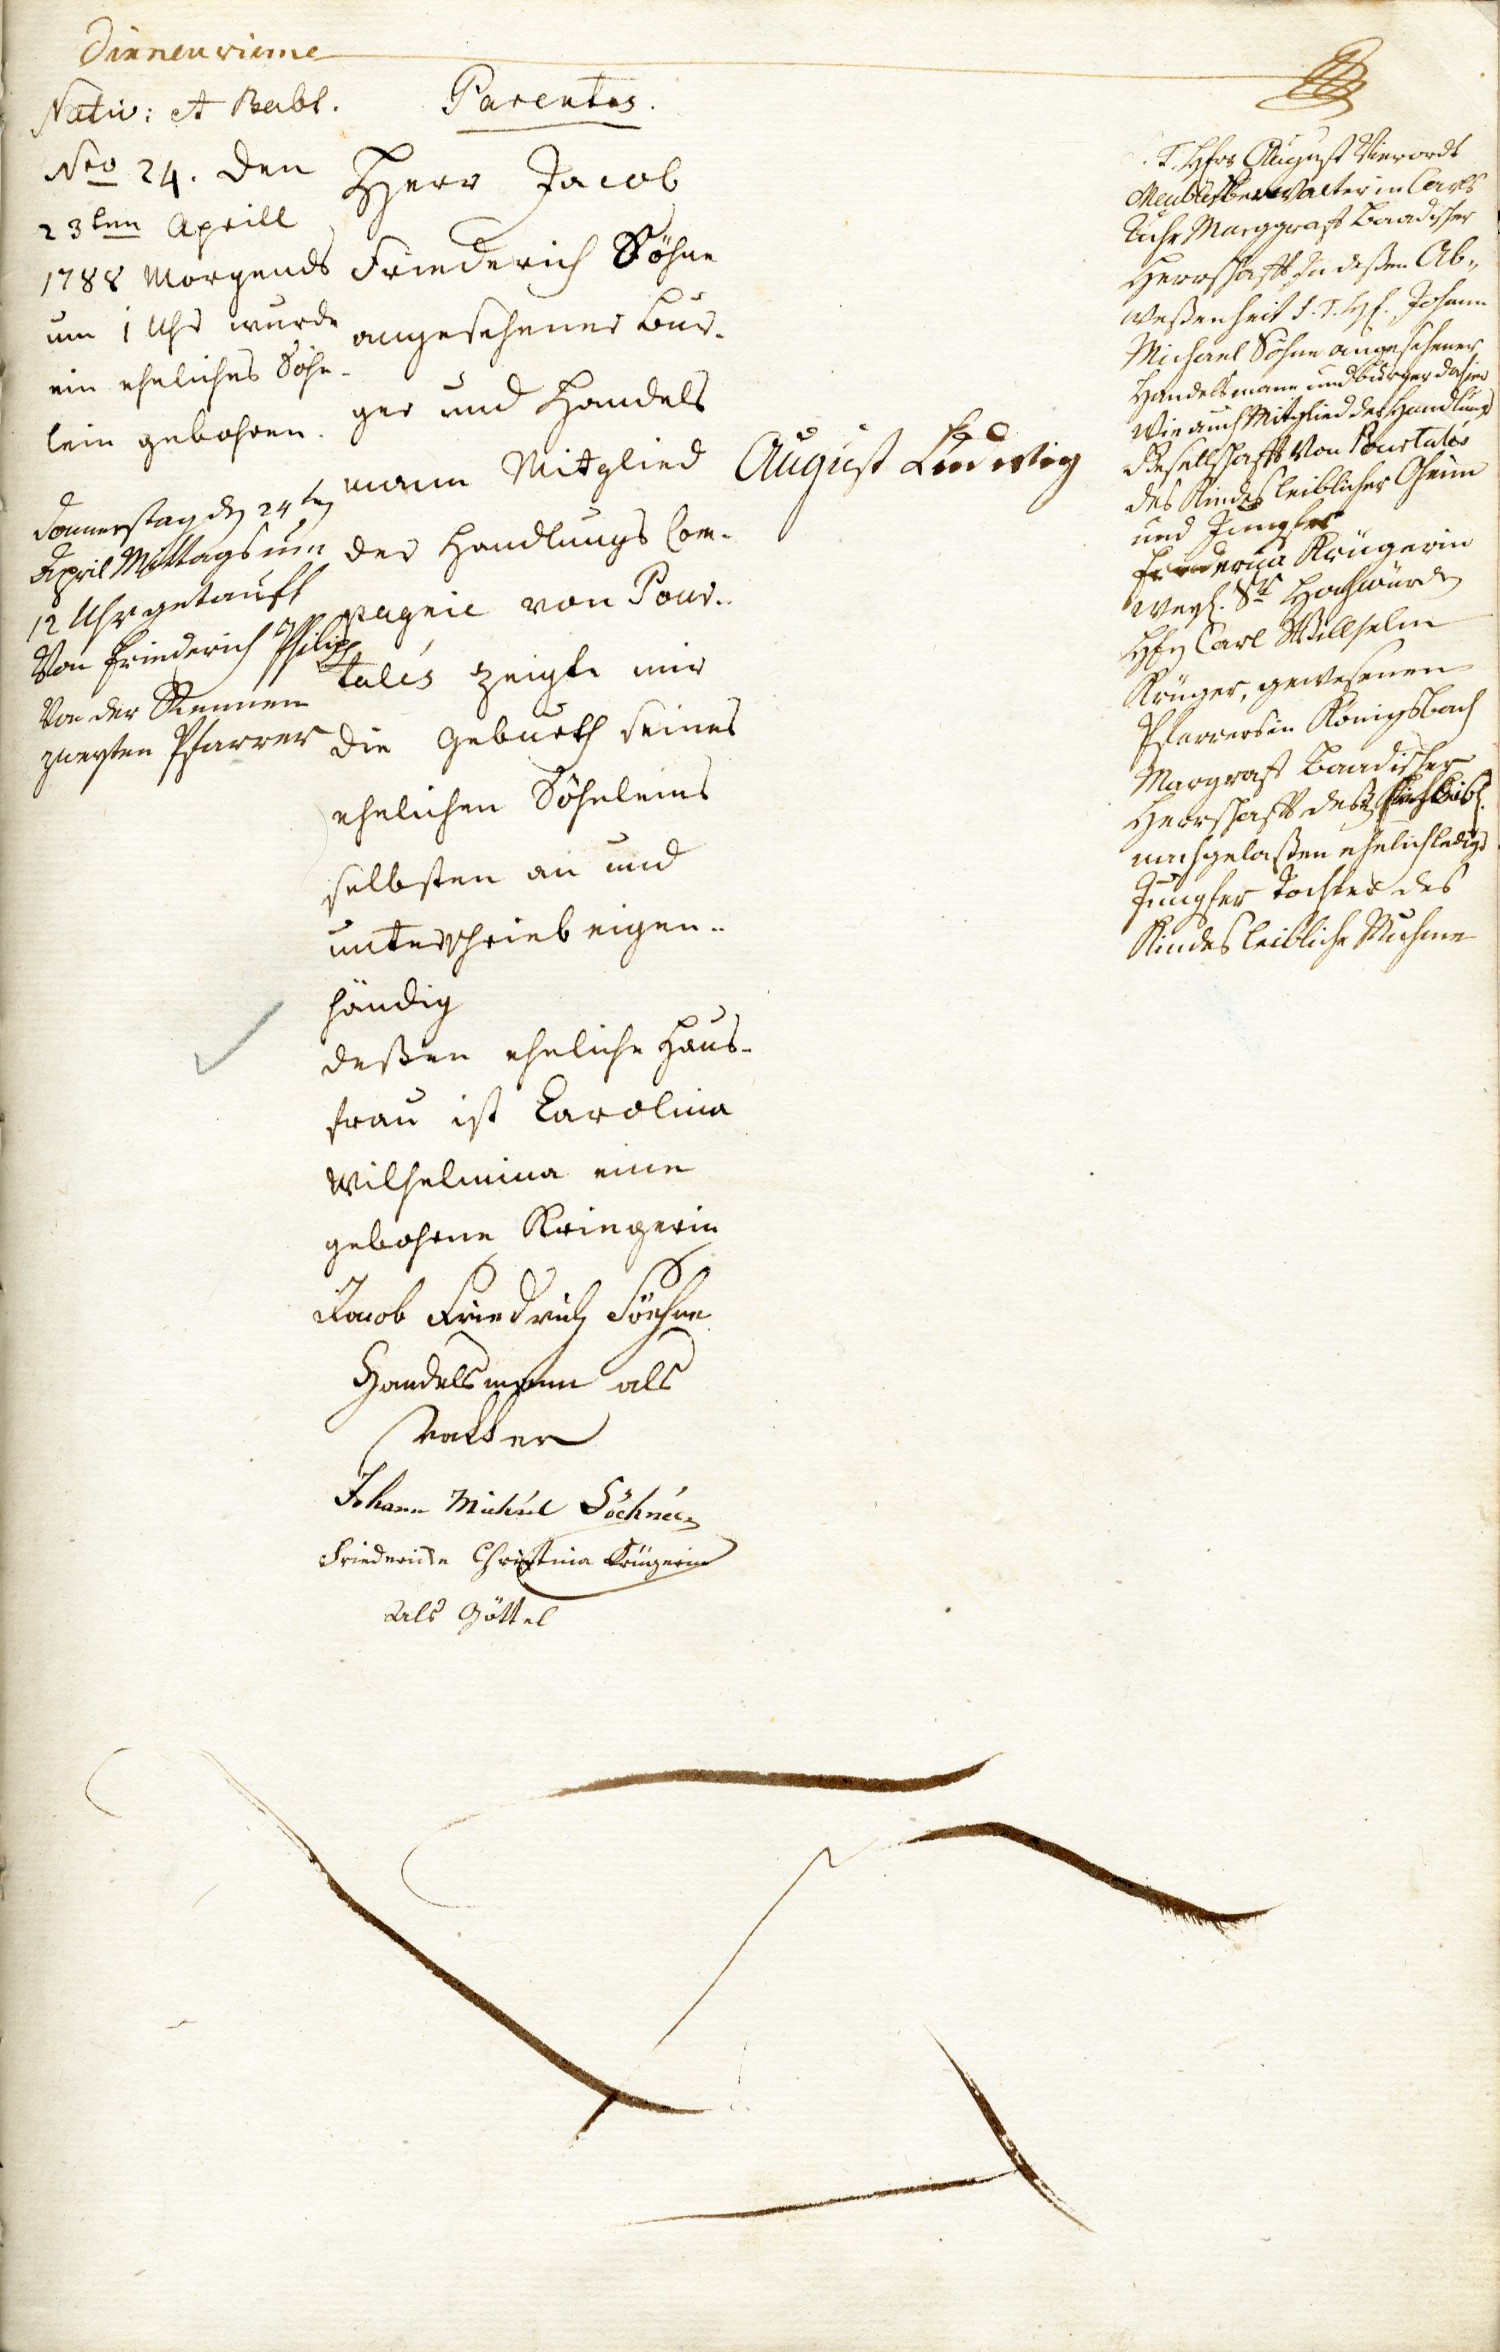 Dixneuvieme
Nativ: et Babt.
Nro 24. Den
23ten Aprill
1788 Morgends
um 1 Uhr wurde
ein eheliches Söhn-
lein gebohren.
Donnerstag dn 24ten
April Mittags um
12 Uhr getauft
Von Friederich Philip
Von der Rennen
zweyten Pfarrer
Parentes.
Herr Jacob
Friederich Söhne
angesehener Bur-
ger und Handels
mann Mitglied
der Handlungs Com-
pagnie von Pour-
talés zeigte mir
die Geburth seines
ehelichen Söhnleins
selbsten an und
unterschrieb eigen-
händig
deßen eheliche Haus-
frau ist Carolina
Wilhelmina eine
gebohrne Kriegerin
Jacob Friedrich Söhne
Handelsmann als
Vatter
Johann Michael Söehnée
Friedericke Christina Krügerin
Als Göttel
August Ludwig
T. Hfrr August Vierordt
Meubles Verwalter in Carls
Ruhe Marggraff Baadischer
Herrschafft In deßen Ab-
weßenheit S. T. H. Johann
Michael Söhne angesehener
Handelsmann und burger dahier
Wie auch Mitglied der Handlungs
Gesellschafft Von Pourtalés
des Kindes leiblicher Oheim
und Jungfer
Friderica Krügerin
weyl. Sr Hochwürdn
Hfrn Carl Willhelm
Krüger, gewesenen
Pfarrers in Königsbach
Margraff Baadischer
Herrschafft deßn
nachgelaßen ehelich ledige
Jungfer Tochter des
Kindes leibliche Muhme